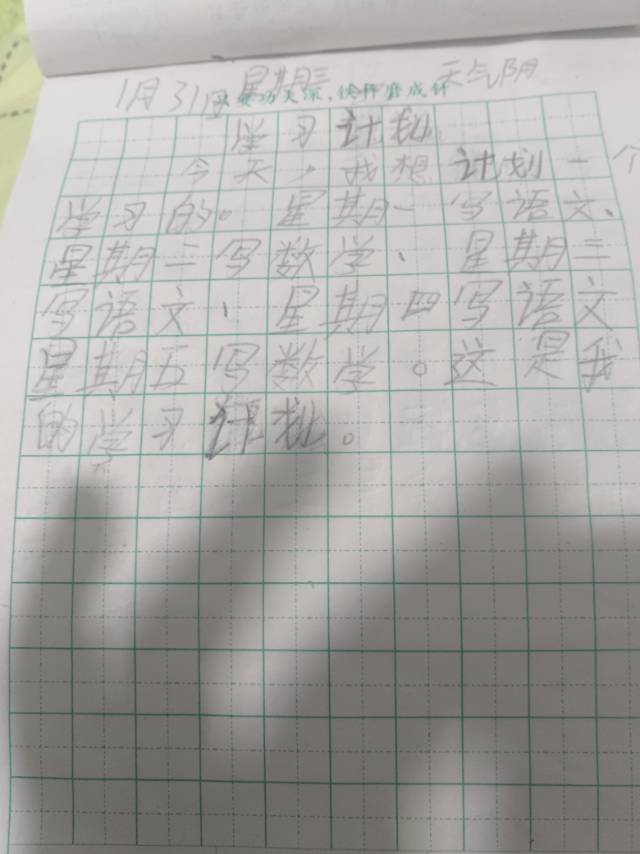 1月31日 星期三 天气阴
只要功夫深,铁杵磨成针
学习计划
今天,我想计划一个
学习的。星期一写语文、
星期二写数学、星期三
写语文、星期四写语文
星期五写数学。这是我
的学习计划。